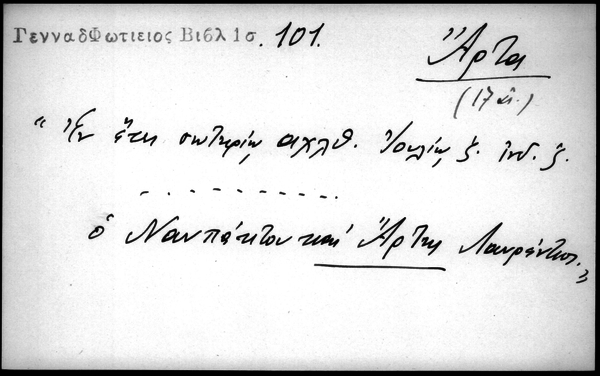 ΓενναδΦωτιειος Βιβλ1σ. 101.
Ἄρτα
(17 αἰ.)
"Ἐν ἔτει σωτηρίῳ αχλθ. Ἰουλίῳ ζ. ἰνδ. ζ.
. . . . . . . . . . .
ὁ Ναυπάκτου καὶ Ἄρτης Λαυρέντιος."